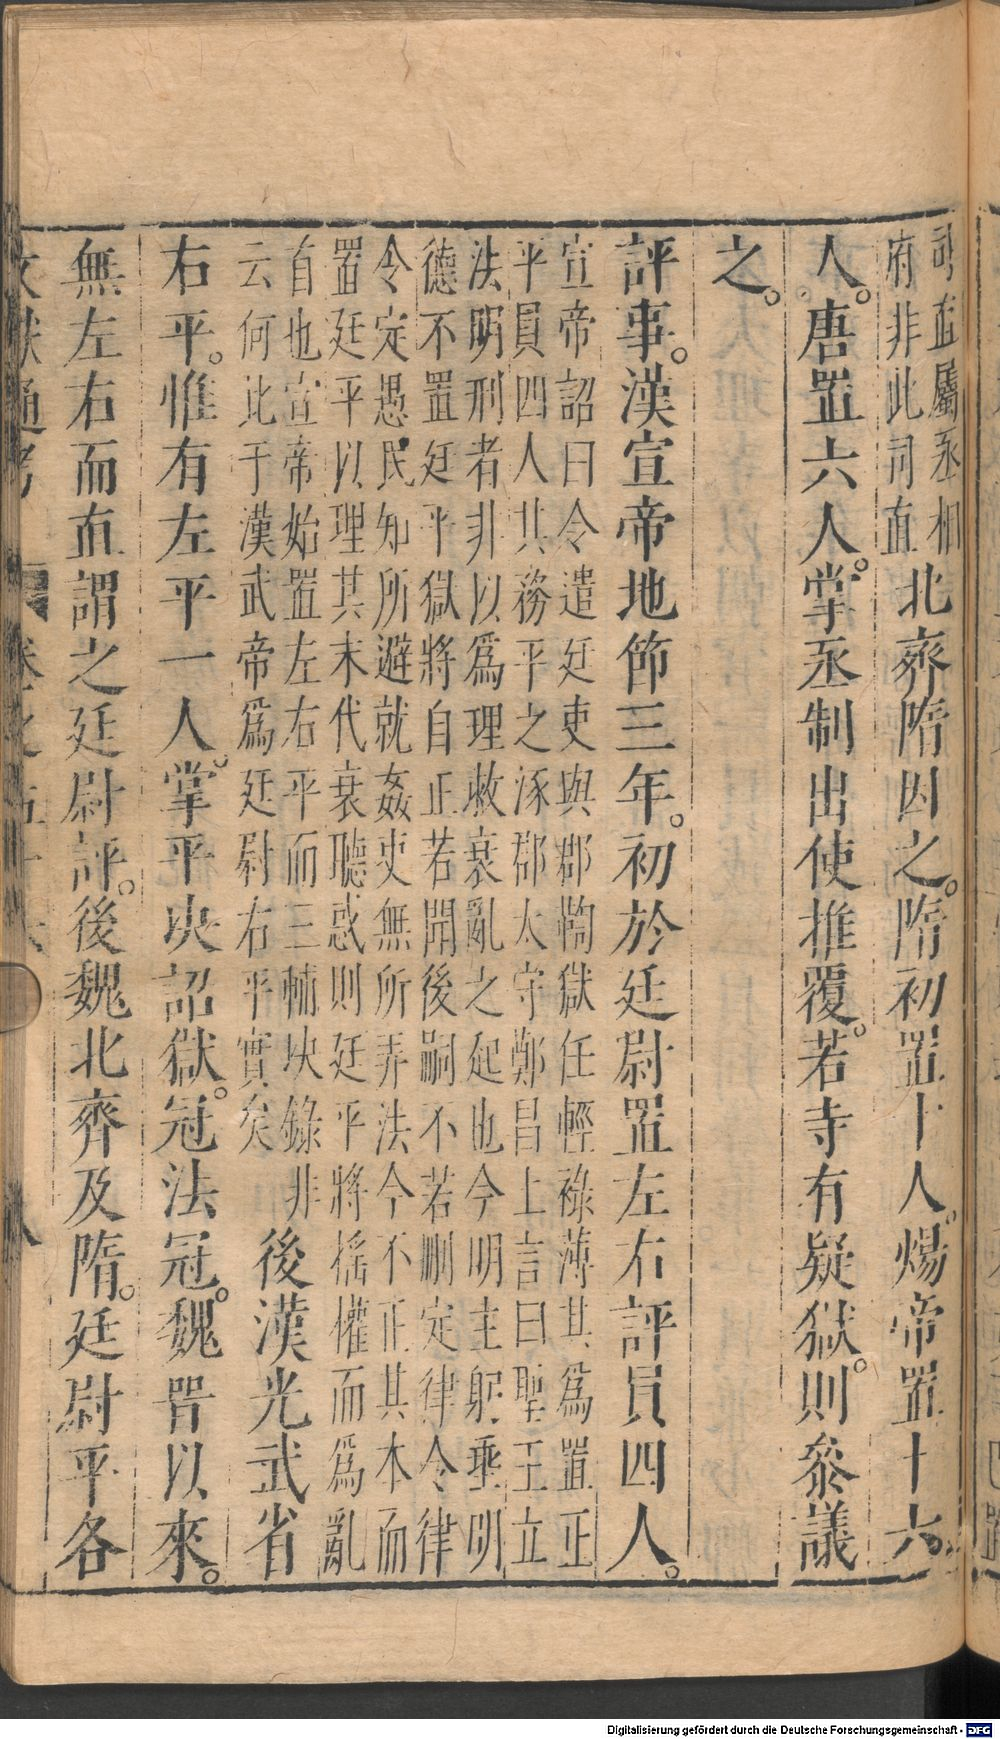 司直屬丞相
府非此司直北齊隋因之。隋初置十人。煬帝置十六
人。唐置六人。掌丞制出使推覆。若寺有疑獄。則叅議
之。
評事。漢宣帝地節三年。初於廷尉置左右評員四人。
宣帝詔曰令遣廷吏與郡鞫獄任輕祿薄其爲置正
平員四人其務平之涿郡太守鄭昌上言曰聖王立
法明刑者非以爲理救衰亂之起也今明主躬垂明
德不置廷平獄將自正若開後嗣不若刪定律令律
令定愚民知所避就姦吏無所弄法今不正其本而
置廷平以理其末代衰聽惑則廷平將搖權而爲亂
自也宣帝始置左右平而三輔决錄非
云何比于漢武帝爲廷尉右平實矣後漢光武省
右平。惟有左平一人。掌平决詔獄。冠法冠。魏晉以來。
無左右而直謂之廷尉評。後魏北齊及隋。廷尉平各
文獻通考 卷之五十六 八
Digitalisierung gefördert durch die Deutsche Forschungsgemeinschaft - DFG